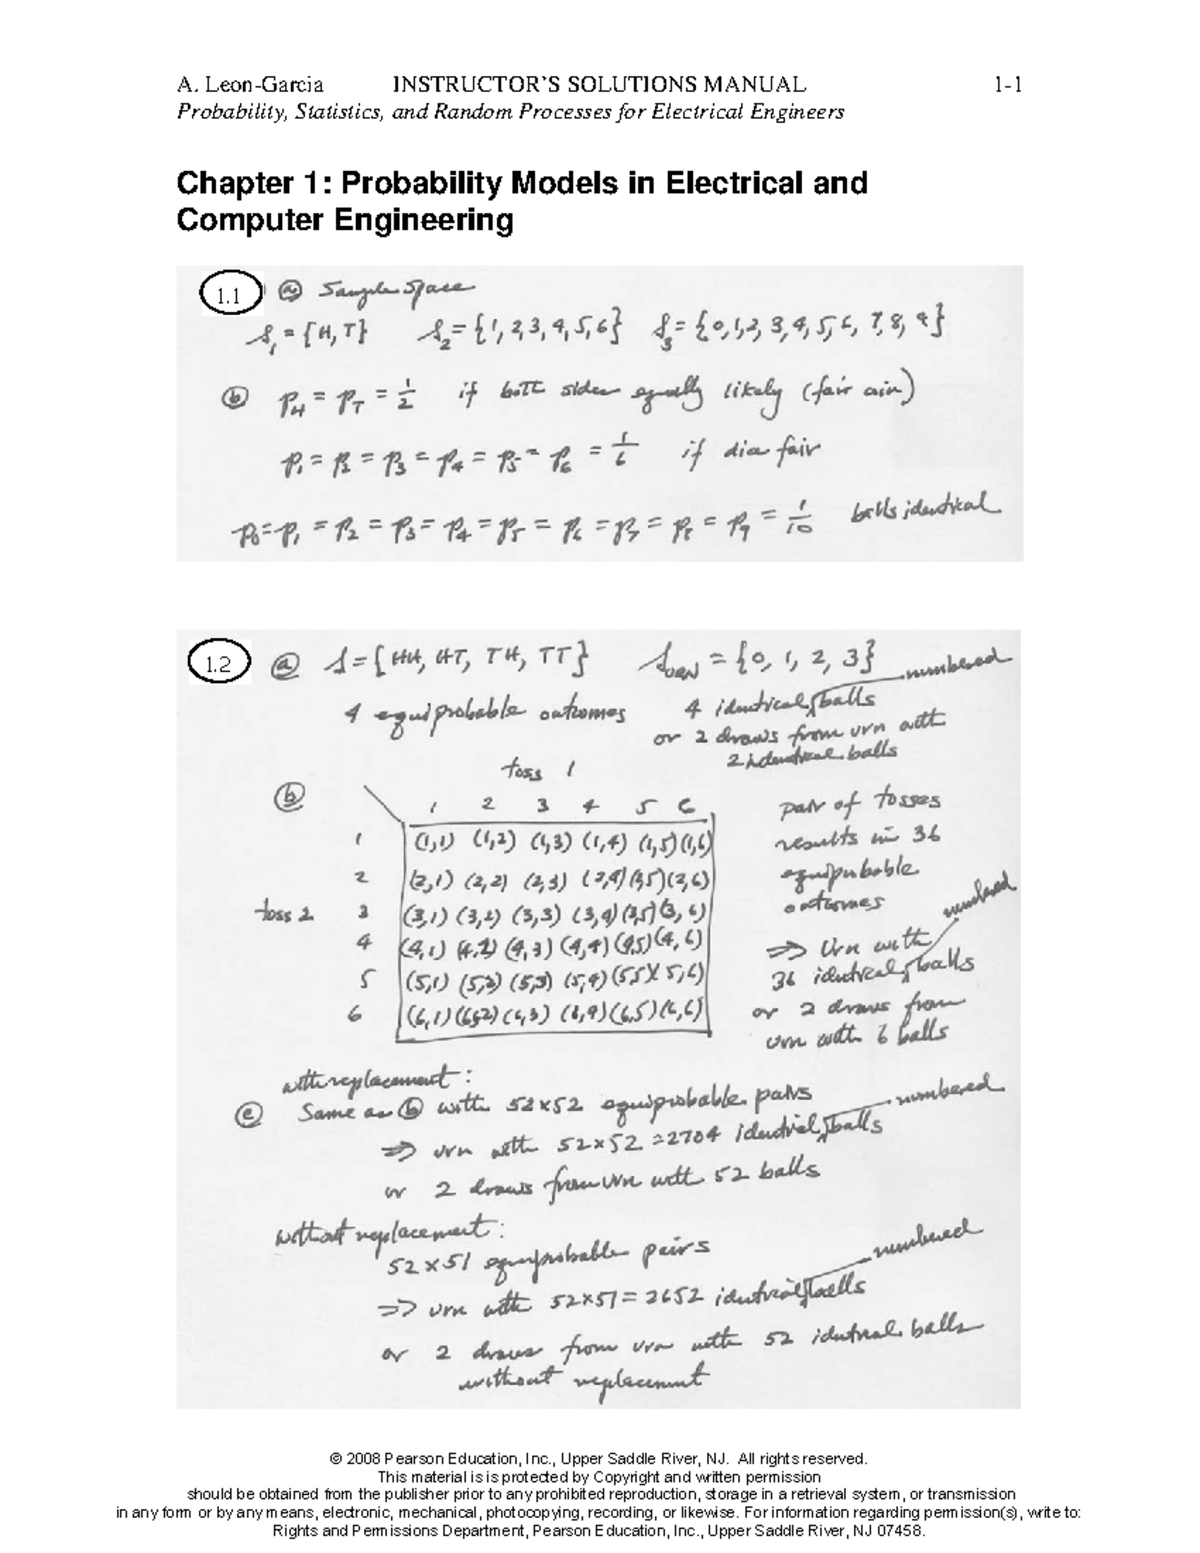 A. Leon-Garcia INSTRUCTOR'S SOLUTIONS MANUAL 1-1
Probability, Statistics, and Random Processes for Electrical Engineers
Chapter 1: Probability Models in Electrical and
Computer Engineering
1.1 (a) Sample Space
S₁ = {H, T} S₂ = {1, 2, 3, 4, 5, 6} S₃ = {0, 1, 2, 3, 4, 5, 6, 7, 8, 9}
(b) p_H = p_T = 1/2 if both sides equally likely (fair coin)
p₁ = p₂ = p₃ = p₄ = p₅ = p₆ = 1/6 if die fair
p₀ = p₁ = p₂ = p₃ = p₄ = p₅ = p₆ = p₇ = p₈ = p₉ = 1/10 balls identical
1.2 (a) S = {HH, HT, TH, TT} S_URN = {0, 1, 2, 3}
numbered
4 equiprobable outcomes 4 identical balls
or 2 draws from urn with
2 identical balls
toss 1
(b) 1 2 3 4 5 6 pair of tosses
1 (1,1) (1,2) (1,3) (1,4) (1,5) (1,6) results in 36
2 (2,1) (2,2) (2,3) (2,4) (2,5) (2,6) equiprobable
toss 2 3 (3,1) (3,2) (3,3) (3,4) (3,5) (3,6) outcomes numbered
4 (4,1) (4,2) (4,3) (4,4) (4,5) (4,6) ⇒ Urn with
5 (5,1) (5,2) (5,3) (5,4) (5,5) (5,6) 36 identical balls
6 (6,1) (6,2) (6,3) (6,4) (6,5) (6,6) or 2 draws from
urn with 6 balls
with replacement:
(c) Same as (b) with 52×52 equiprobable pairs numbered
⇒ urn with 52×52 = 2704 identical balls
or 2 draws from urn with 52 balls
without replacement:
52×51 equiprobable pairs numbered
⇒ urn with 52×51 = 2652 identical balls
or 2 draws from urn with 52 identical balls
without replacement
© 2008 Pearson Education, Inc., Upper Saddle River, NJ. All rights reserved.
This material is is protected by Copyright and written permission
should be obtained from the publisher prior to any prohibited reproduction, storage in a retrieval system, or transmission
in any form or by any means, electronic, mechanical, photocopying, recording, or likewise. For information regarding permission(s), write to:
Rights and Permissions Department, Pearson Education, Inc., Upper Saddle River, NJ 07458.